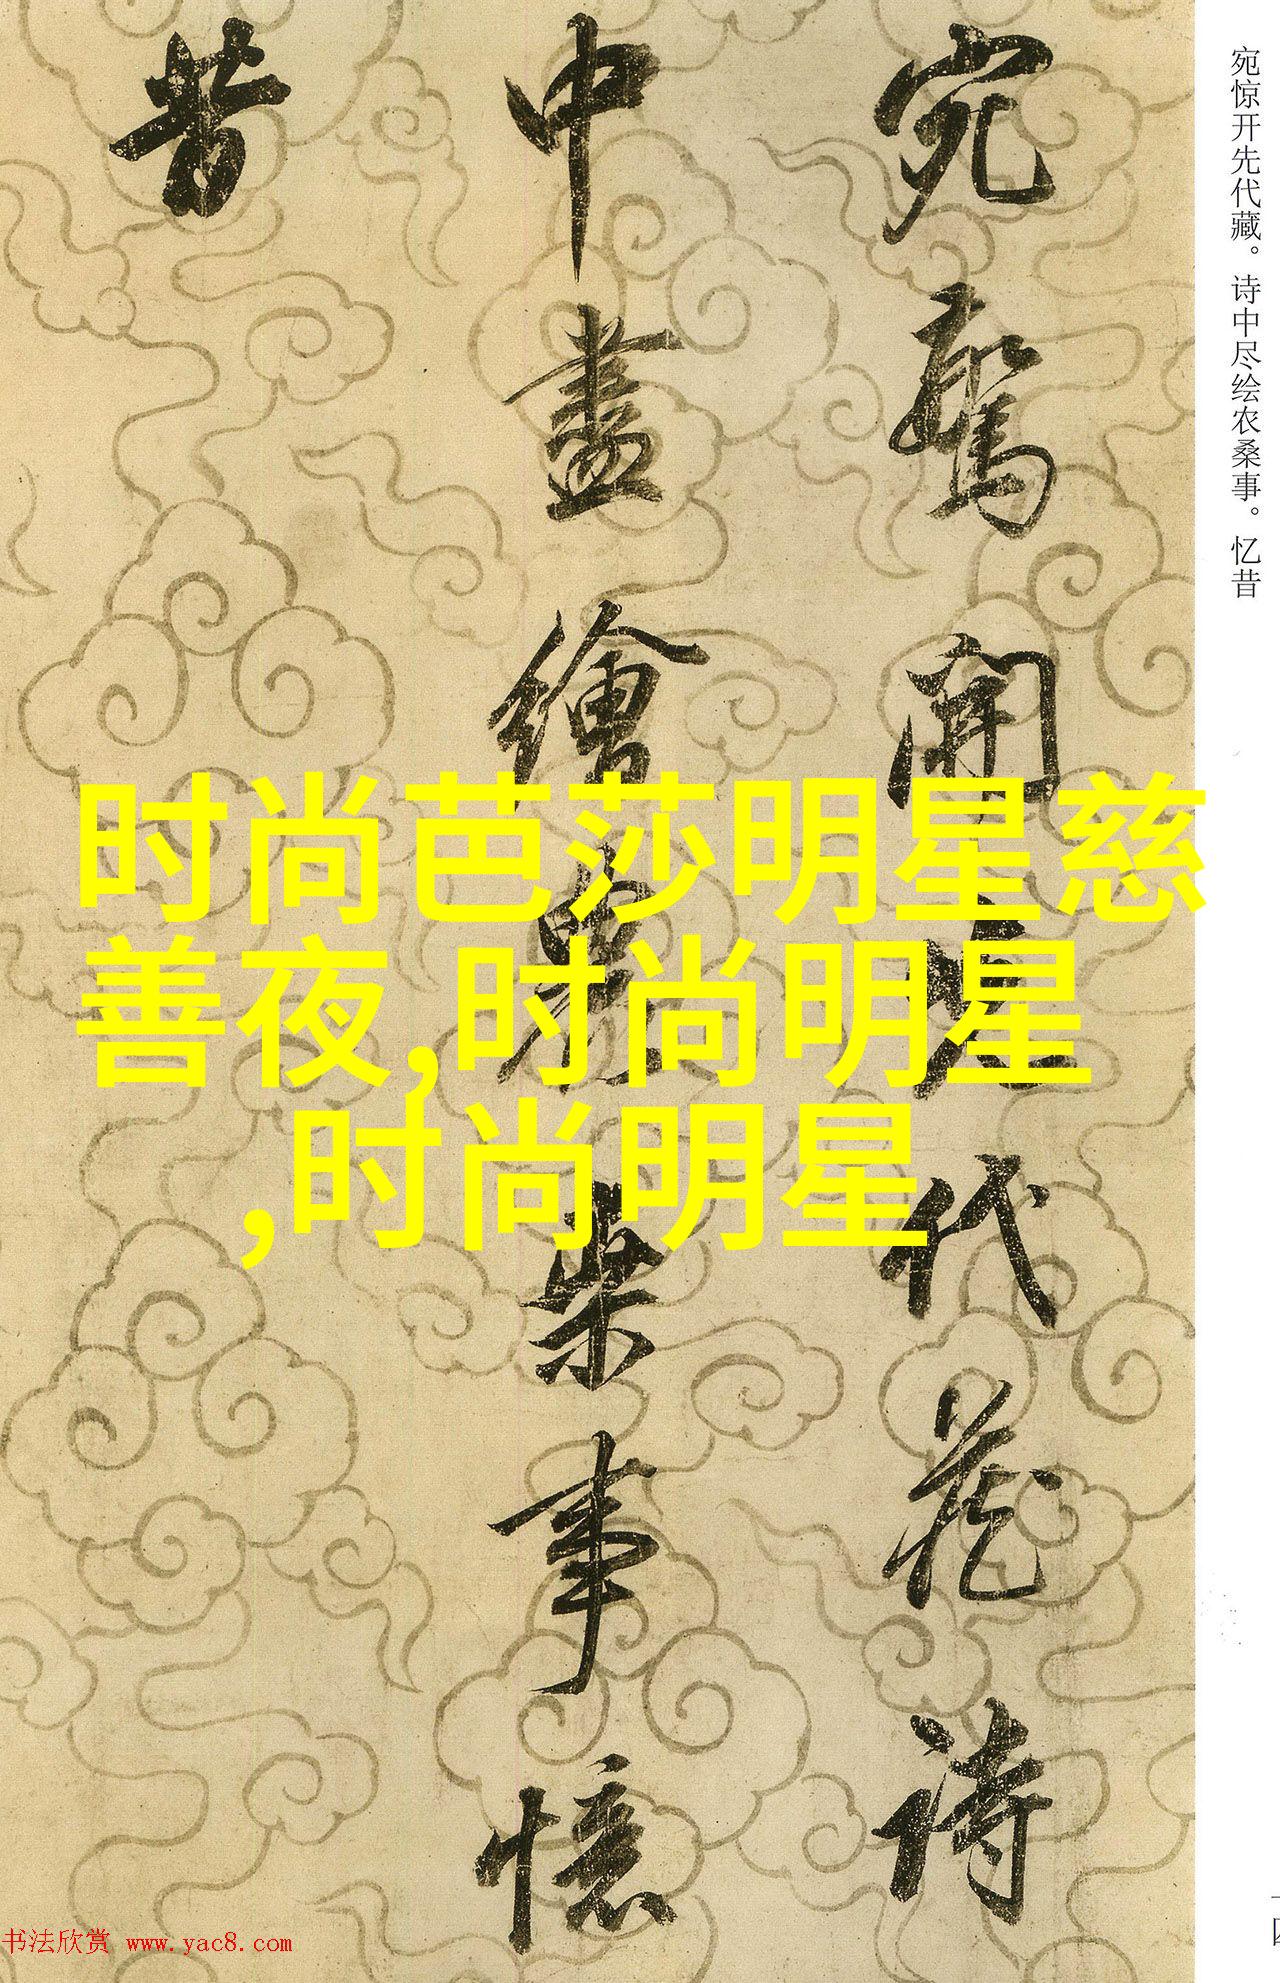 宛驚開先代藏詩
中盡繪農桒事憶
昔
宛惊开先代藏。诗中尽绘农桑事。忆昔
时尚芭莎明星慈
善夜,时尚明星
,时尚明星
书法欣赏 www.yac8.com